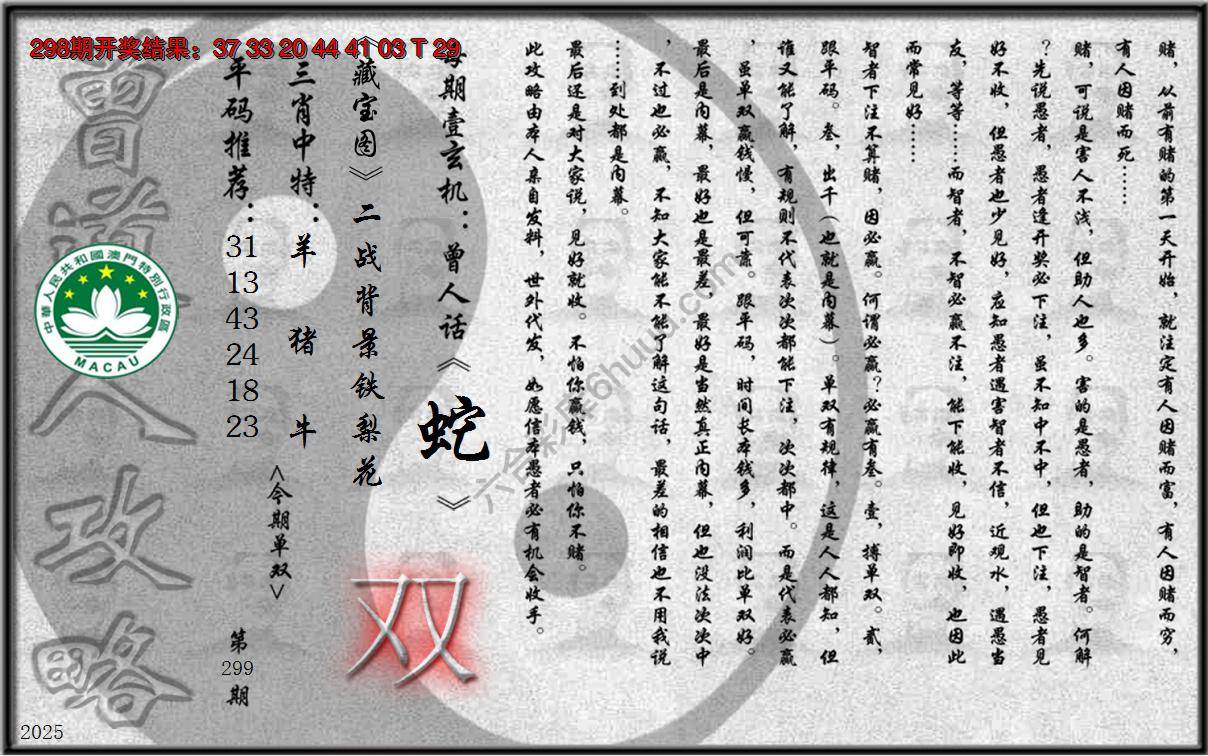 298期开奖结果：37 33 20 44 41 03 T 29
赌，从前有赌的第一天开始，就注定有人因赌而富，有人因赌而穷，
有人因赌而死……
赌，可说是害人不浅，但助人也多。害的是愚者，助的是智者。何解
？先说愚者，愚者逢开奖必下注，虽不知中不中，但也下注，愚者见
好不收，但愚者也少见好，应知愚者遇害智者不信，近观水，遇愚当
友，等等……而智者，不智必赢不注，能下能收，见好即收，也因此
而常见好……
智者下注不算赌，因必赢。何谓必赢？必赢有叁。壹，搏单双。贰，
跟平码。叁，出千（也就是内幕）。单双有规律，这是人人都知，但
谁又能了解，有规则不代表次次都能下注，次次都中。而是代表必赢
，虽单双赢钱慢，但可靠。跟平码，时间长本钱多，利润比单双好。
最后是内幕，最好也是最差，最好是当然真正内幕，但也没法次次中
，不过也必赢，不知大家能不能了解这句话，最差的相信也不用我说
……到处都是内幕。
最后还是对大家说，见好就收。不怕你赢钱，只怕你不赌。
此攻略由本人亲自发料，世外代发，如愿信本愚者必有机会收手。
每期壹玄机：曾人话《蛇》
《藏宝图》二战背景铁梨花
双
三肖中特：羊 猪 牛
<今期单双>
平码推荐：31 13 43 24 18 23
第299期
曾道人攻略
中華人民共和國澳門特別行政區
MACAU
六合彩库6huuu.com
2025